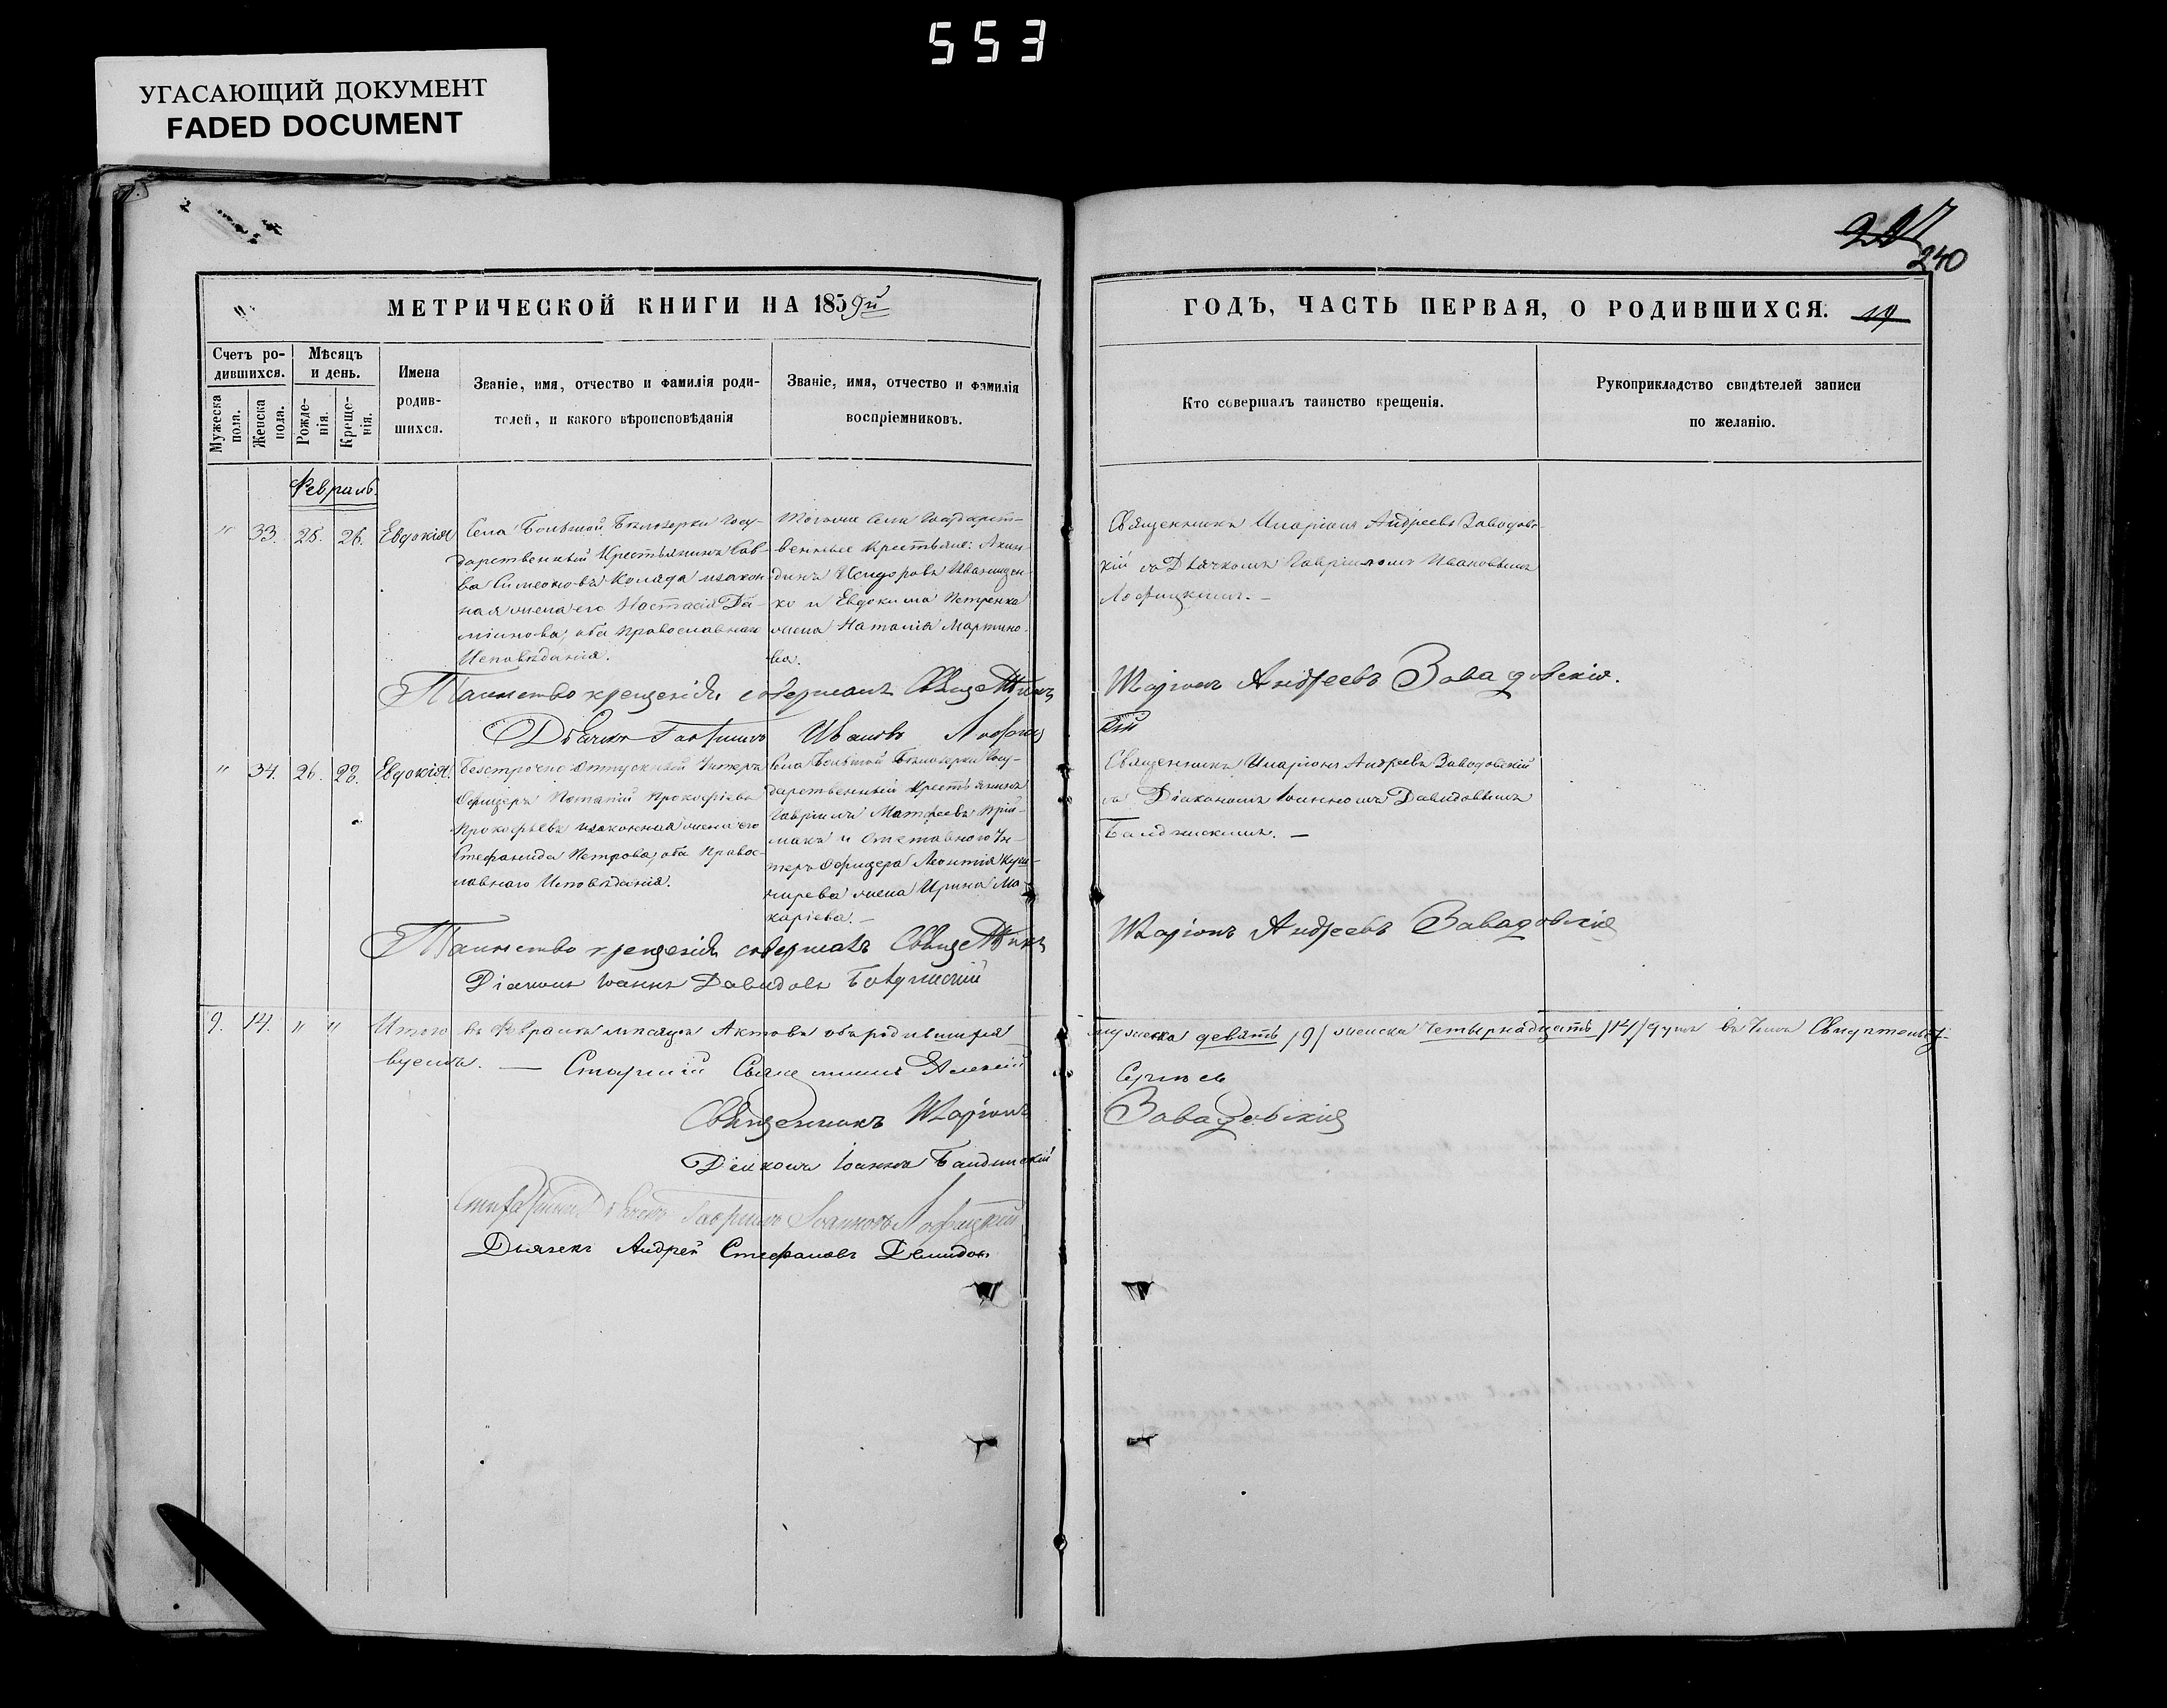 553
УГАСАЮЩИЙ ДОКУМЕНТ
FADED DOCUMENT
240
МЕТРИЧЕСКОЙ КНИГИ НА 1859й
ГОДЪ, ЧАСТЬ ПЕРВАЯ, О РОДИВШИХСЯ. 19
Счетъ ро-
дившихся.
Мужеска
пола.
Женска
пола.
Мѣсяцъ
и день.
Рожде-
нія.
Креще-
нія.
Имена
родив-
шихся.
Званіе, имя, отчество и фамилія роди-
телей, и какого вѣроисповѣданія
Званіе, имя, отчество и фамилія
воспріемниковъ.
Кто совершалъ таинство крещенія.
Рукоприкладство свидѣтелей записи
по желанію.
Февраль.
" 33. 25. 26. Евдокія
Села Большой Бѣлозерки Госу-
дарственный Крестьянинъ Сав-
ва Симеоновъ Коляда изакон-
ная жена его Настасія Да-
міанова, оба православнаго
Исповѣданія.
Тогоже Села Государст-
венные Крестьяне: Акин-
динъ Исидоровъ Иванищен-
ко и Евдокима Петренка
жена Наталія Мартино-
ва.
Священникъ Иларіонъ Андреевъ Завадовс-
кій съ Дьячкомъ Гавріиломъ Ивановымъ
Лофицкимъ. —
Таинство крещенія совершалъ Священникъ
Иларіонъ Андреевъ Завадовскій.
Дьячекъ Гавріилъ Ивановъ
" 34. 26. 28. Евдокія.
Безсрочно Отпускной Унтеръ
Офицеръ Потапій Прокофіевъ
Прокофьевъ изаконная жена его
Стефанида Петрова, оба Правос-
лавнаго Исповѣданія.
Села Большой Бѣлозерки Госу-
дарственный Крестьянинъ
Гавріилъ Матфеевъ Прій-
макъ и Отставного Ун-
теръ Офицера Леонтія
жена Ирина Ма-
каріева. —
Священникъ Иларіонъ Андреевъ Завадовскій
съ Діакономъ Іоанномъ Давидовымъ
Балджискимъ. —
Таинство крещенія совершалъ Священникъ
Иларіонъ Андреевъ Завадовскій
Діаконъ Іоаннъ Давидовъ
9. 14. " " Итого въ Февралѣ мѣсяцѣ Актовъ объ родившихся
мужеска девять /9/ женска Четырнадцать /14/ душъ въ чемъ Свидѣтельст-
вуемъ. — Старшій Священникъ Алексій
Сергѣевъ
Священникъ Иларіонъ
Завадовскій
Діаконъ Іоаннъ Балджискій
Дьячекъ Гавріилъ Іоанновъ Лофицкій
Дьячекъ Андрей Стефановъ Демидовъ